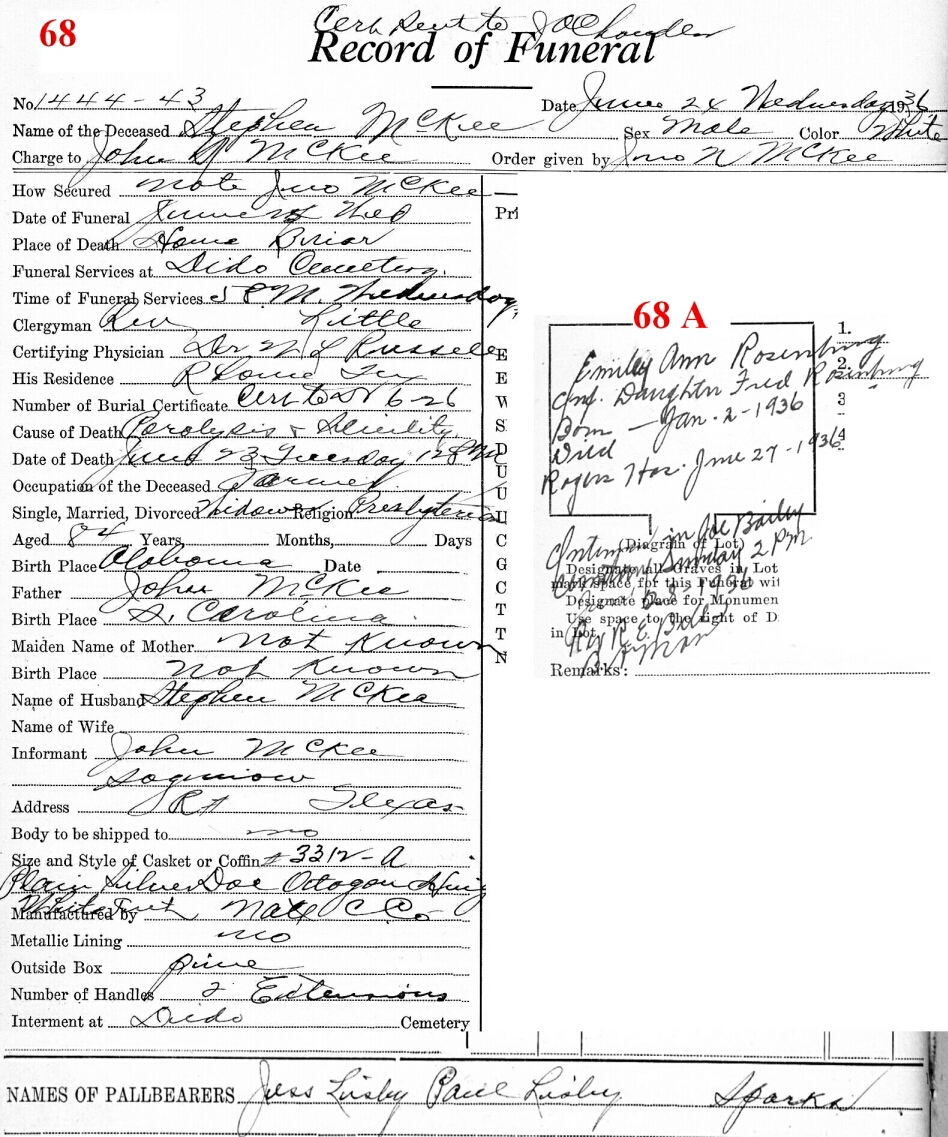 68
Cert sent to Joe
Record of Funeral
No. 1444-43
Date June 24 Wednesday 1936
Name of the Deceased Stephen McKee Sex Male Color White
Charge to John N McKee Order given by Jno N McKee
How Secured note Jno McKee
Date of Funeral June 24 Wed
Place of Death Home Briar
Funeral Services at Dido Cemetery.
Time of Funeral Services 5 P.M. Wednesday
Clergyman Rev Little
Certifying Physician Dr N L Russell
His Residence Rhome Tex
Number of Burial Certificate Cert to 6-26
Cause of Death Paralysis & Senility
Date of Death June 23 Tuesday
Occupation of the Deceased Farmer
Single, Married, Divorced Widower Religion Presbyterian
Aged 84 Years, Months, Days
Birth Place Alabama Date
Father John McKee
Birth Place S. Carolina
Maiden Name of Mother not Known
Birth Place not Known
Name of Husband Stephen McKee
Name of Wife
Informant John McKee
Saginaw
Address Rt Texas
Body to be shipped to no
Size and Style of Casket or Coffin # 3312-A
Plain Silver Doe Octogon
White Manufactured by Natl C Co
Metallic Lining no
Outside Box pine
Number of Handles 2 Extensions
Interment at Dido Cemetery
Pri
E
E
W
S
D
U
U
U
C
G
C
T
N
68 A
1.
2.
3
4
Emily Ann Rosenburg
Inf. Daughter Fred Rosenburg
Born - Jan-2-1936
Died
Rogers Hos. June 27-1936
Interment in Joe Bailey
Cemetery Sunday 2 PM
June 28-1936
Rev R. E.
(Diagram of Lot)
Designate all Graves in Lot
mark space for this Funeral wit
Designate place for Monumen
Use space to the right of D
in Lot.
Remarks:
NAMES OF PALLBEARERS Jess Lisby Paul Lisby Sparks